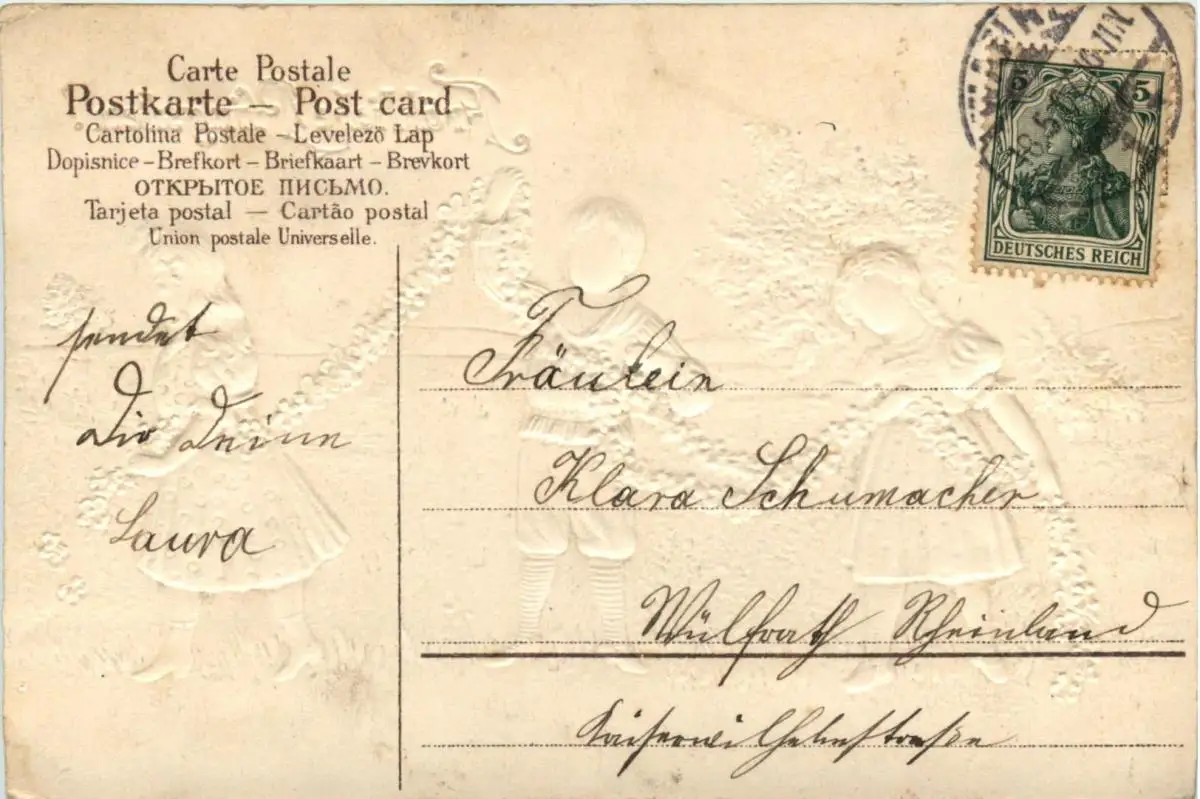 Carte Postale
Postkarte – Post card
Cartolina Postale – Levelező Lap
Dopisnice – Brefkort – Briefkaart – Brevkort
ОТКРЫТОЕ ПИСЬМО.
Tarjeta postal — Cartão postal
Union postale Universelle.
sendet
Dir Deine
Laura
5 5
DEUTSCHES REICH
Fräulein
Klara Schumacher
Wülfrath Rheinland
Kaiserwilhelmstraße